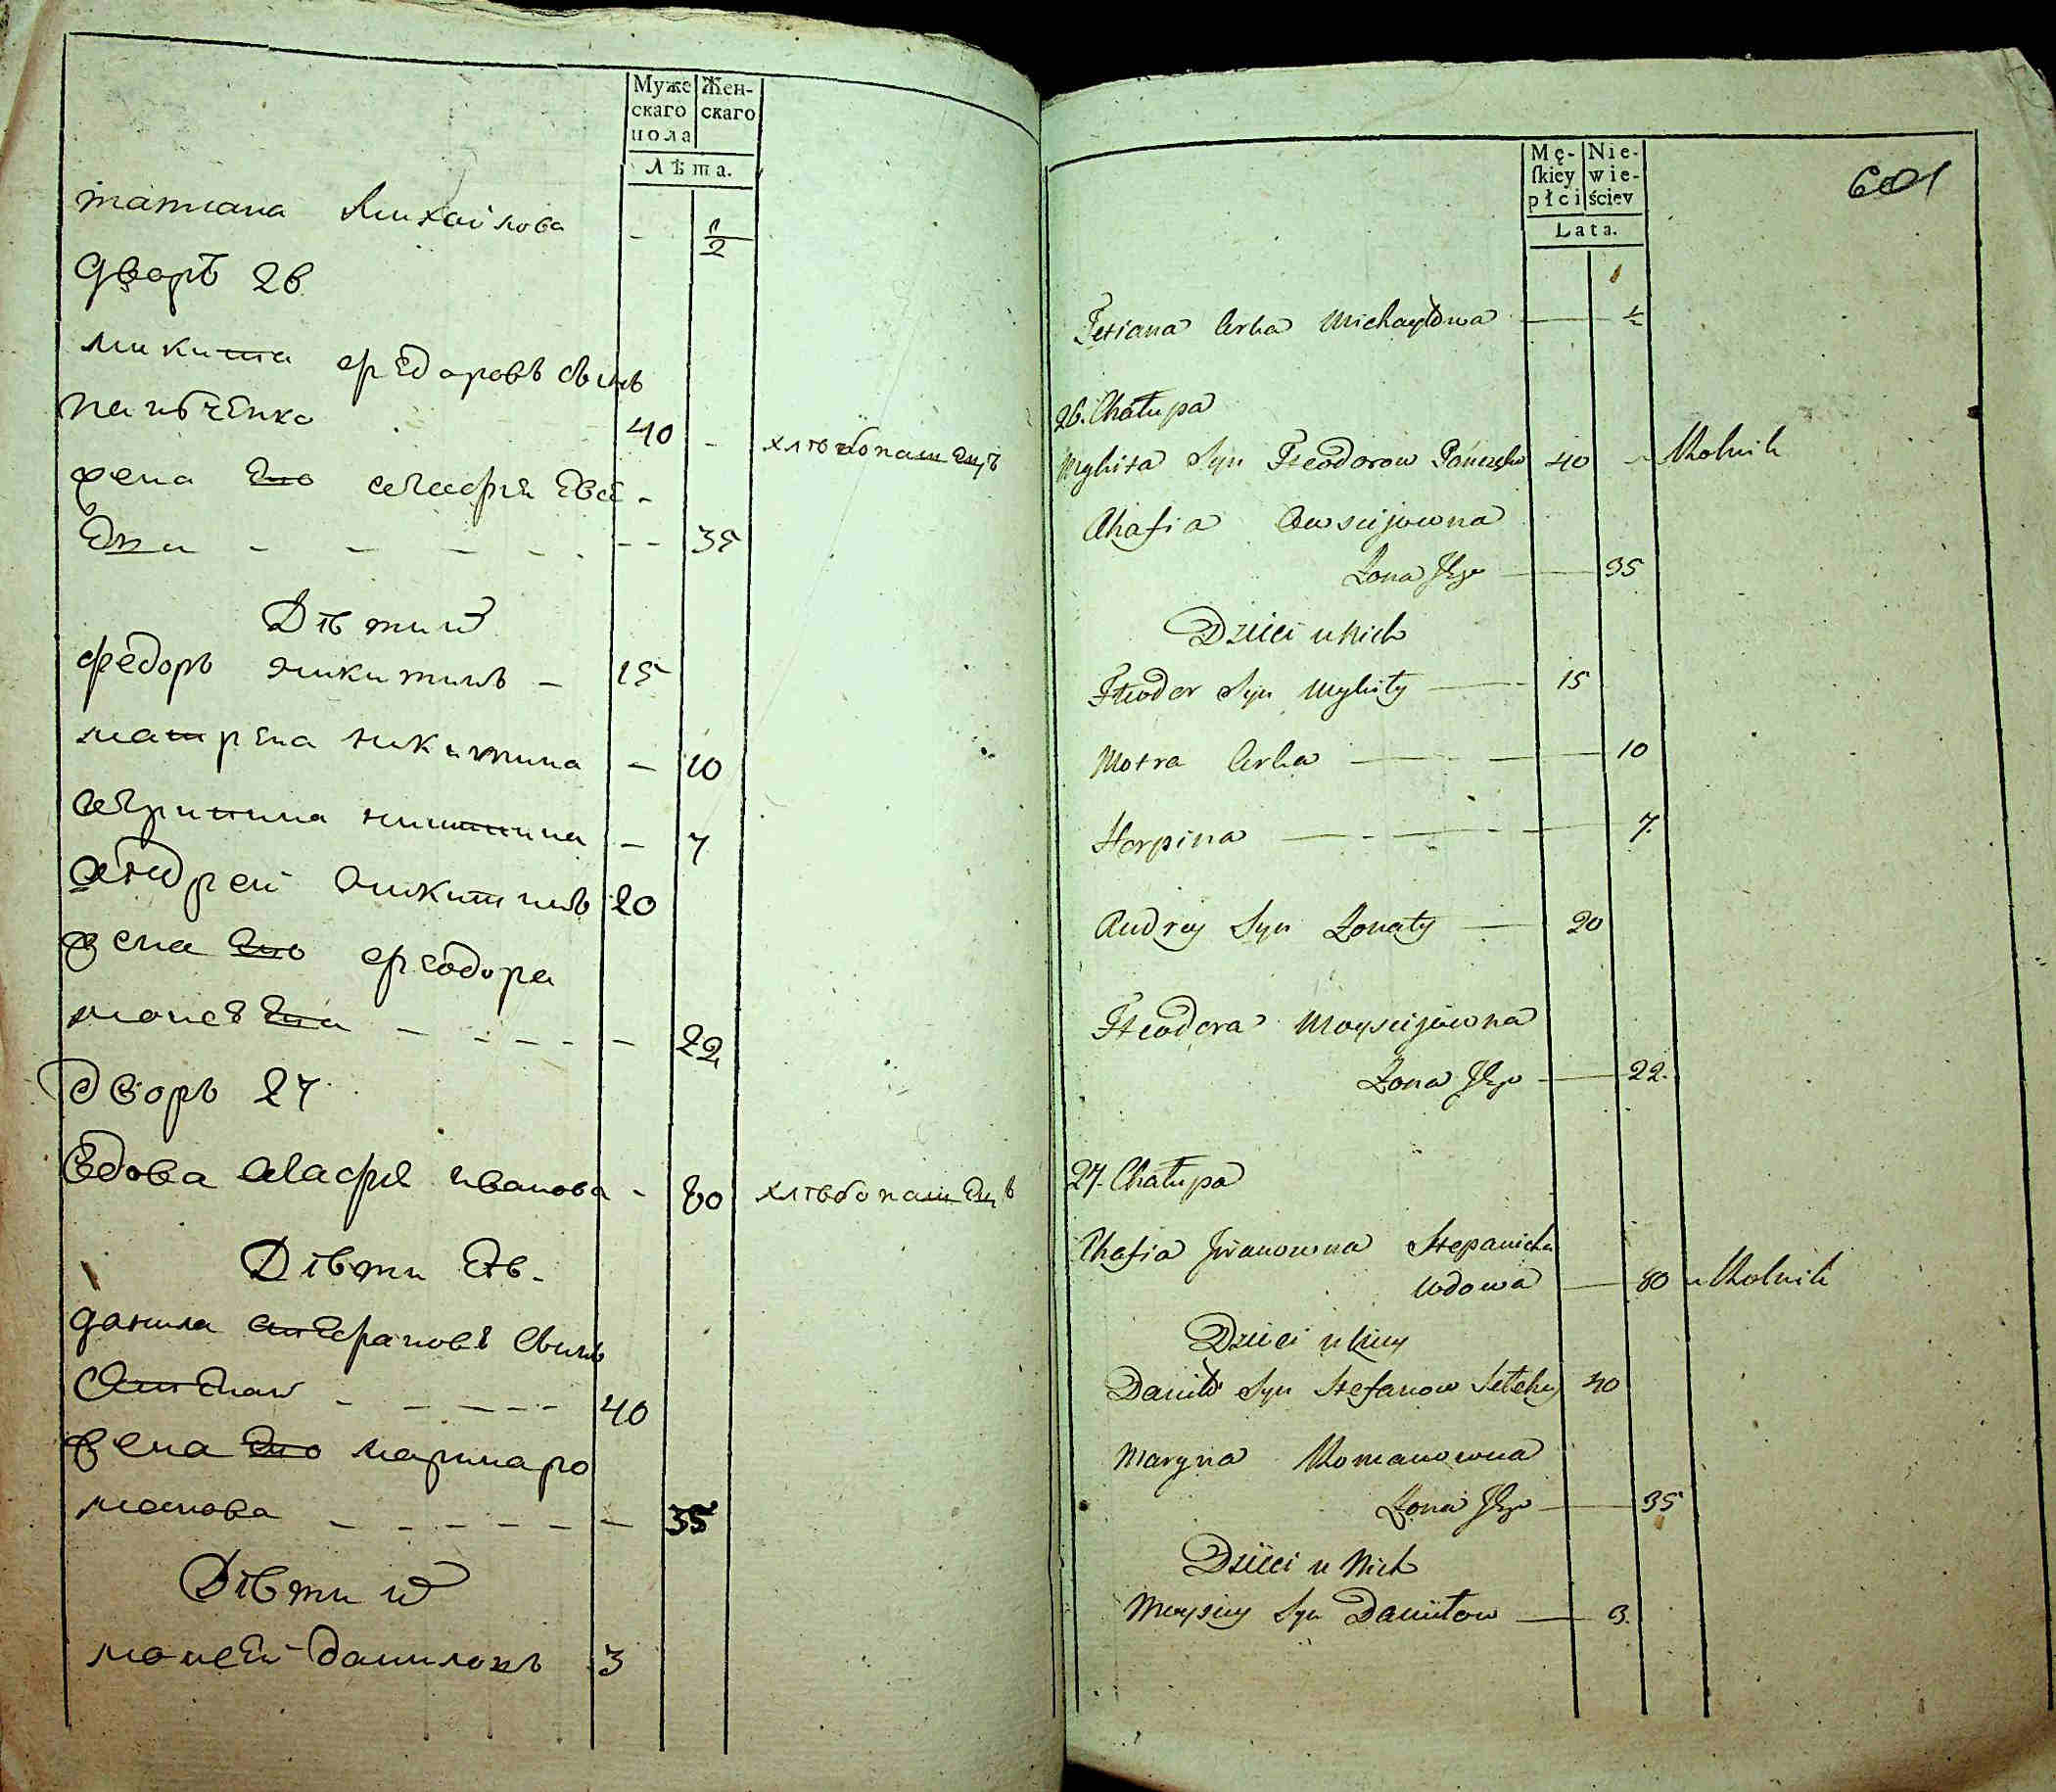 Муже
скаго
пола
Жен-
скаго
Лѣта.
татиана Михайлова - 1/2
дворъ 26
микита федоровъ сынъ
панченко 40 - хлѣбопашецъ
жена его агафия Евсе -
Ена - - - - - - 35
Дѣти их
федоръ никитинъ - 15
матрена никитина - 10
агрипина никитина - 7
андрей никитинъ 20
жена его феодора
моисеена - - - - - 22
дворъ 27
вдова агафия иванова - 80 хлѣбопашецъ
Дѣти Ея.
данила стефановъ сынъ
- - - - - 40
жена его марина ро
манова - - - - - - 35
Дѣти их
моисей даниловъ 3
601
Mę-
ſkiey
płci
Nie-
wie-
ściey
Lata.
Tetiana Corka Michayłowa — ½
26. Chałupa
Mykita Syn Fteodorow Panczeko 40 Rolnik
Ahafia Owsiejowna
Żona Jego — 35
Dzieci u Nich
Fteodor Syn Mykity — 15
Motra Corka — 10
Horpina — 7.
Andrey Syn Żonaty — 20
Fteodora Moysiejowna
Żona Jego — 22.
27. Chałupa
Ahafia Jwanowna Stepanicha
Wdowa — 80 Rolnik
Dzieci u Niey
Daniło Syn Stefanow 40
Maryna Romanowna
Żona Jego — 35
Dzieci u Nich
Moysiey Syn Daniłow — 3.